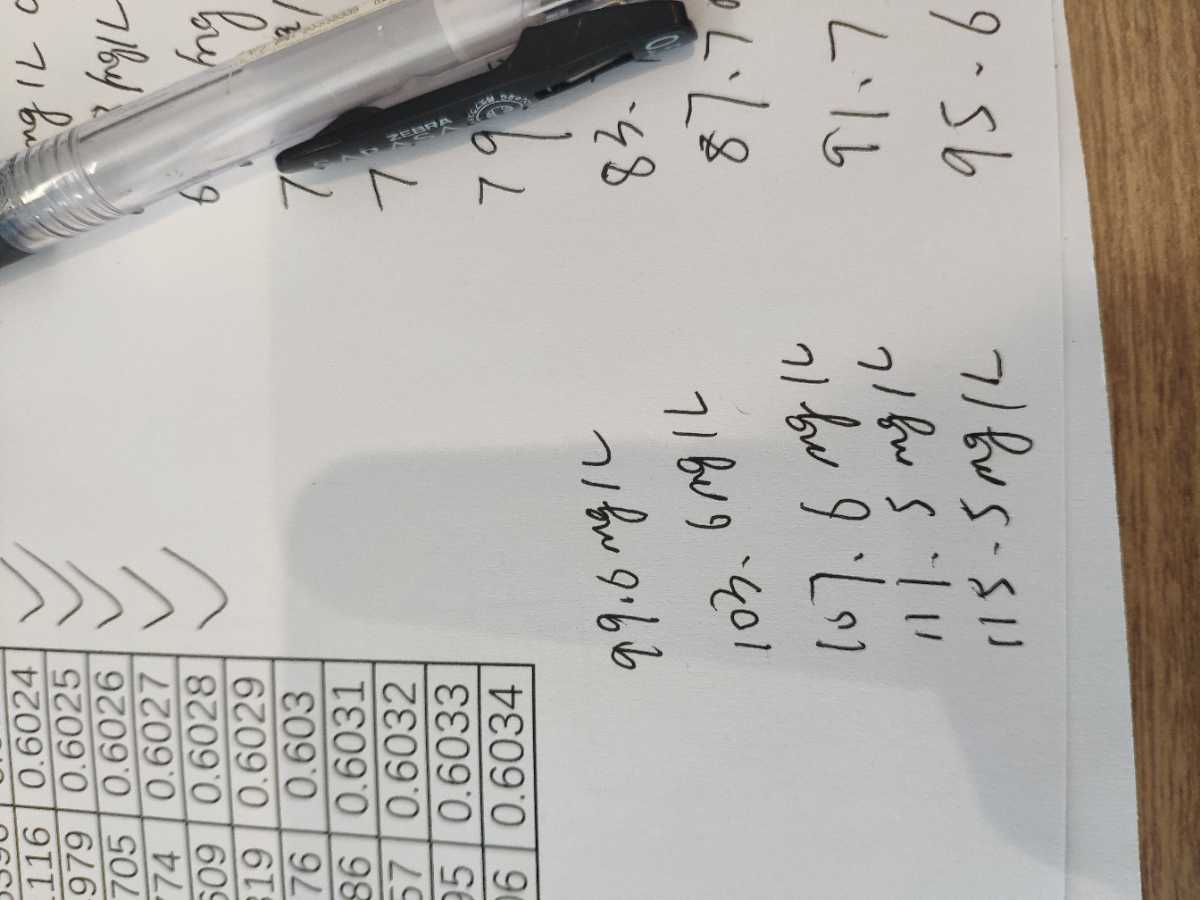 mg/L
mg/L
mg
7
7
79
83.
87.7
91.7
95.6
ZEBRA
SARASA
116 0.6024
979 0.6025
705 0.6026
774 0.6027
609 0.6028
319 0.6029
76 0.603
86 0.6031
57 0.6032
95 0.6033
06 0.6034
99.6 mg/L
103.6 mg/L
107.6 mg/L
111.5 mg/L
115.5 mg/L